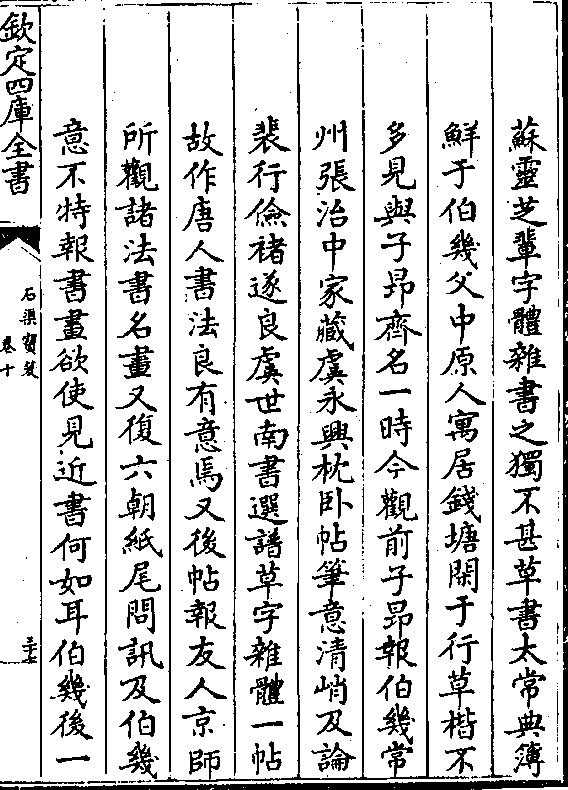 蘇靈芝輩字體雜書之獨不甚草書太常典簿
鮮于伯幾父中原人寓居錢塘閑于行草楷不
多見與子昻齊名一時今觀前子昻報伯幾常
州張治中家藏虞永興枕卧帖筆意清峭及論
裴行儉褚遂良虞世南書選譜草字雜體一帖
故作唐人書法良有意焉又後帖報友人京師
所觀諸法書名畫又復六朝紙尾問訊及伯幾
意不特報書畫欲使見近書何如耳伯幾後一
欽定四庫全書
石渠寶笈
卷十
三十七